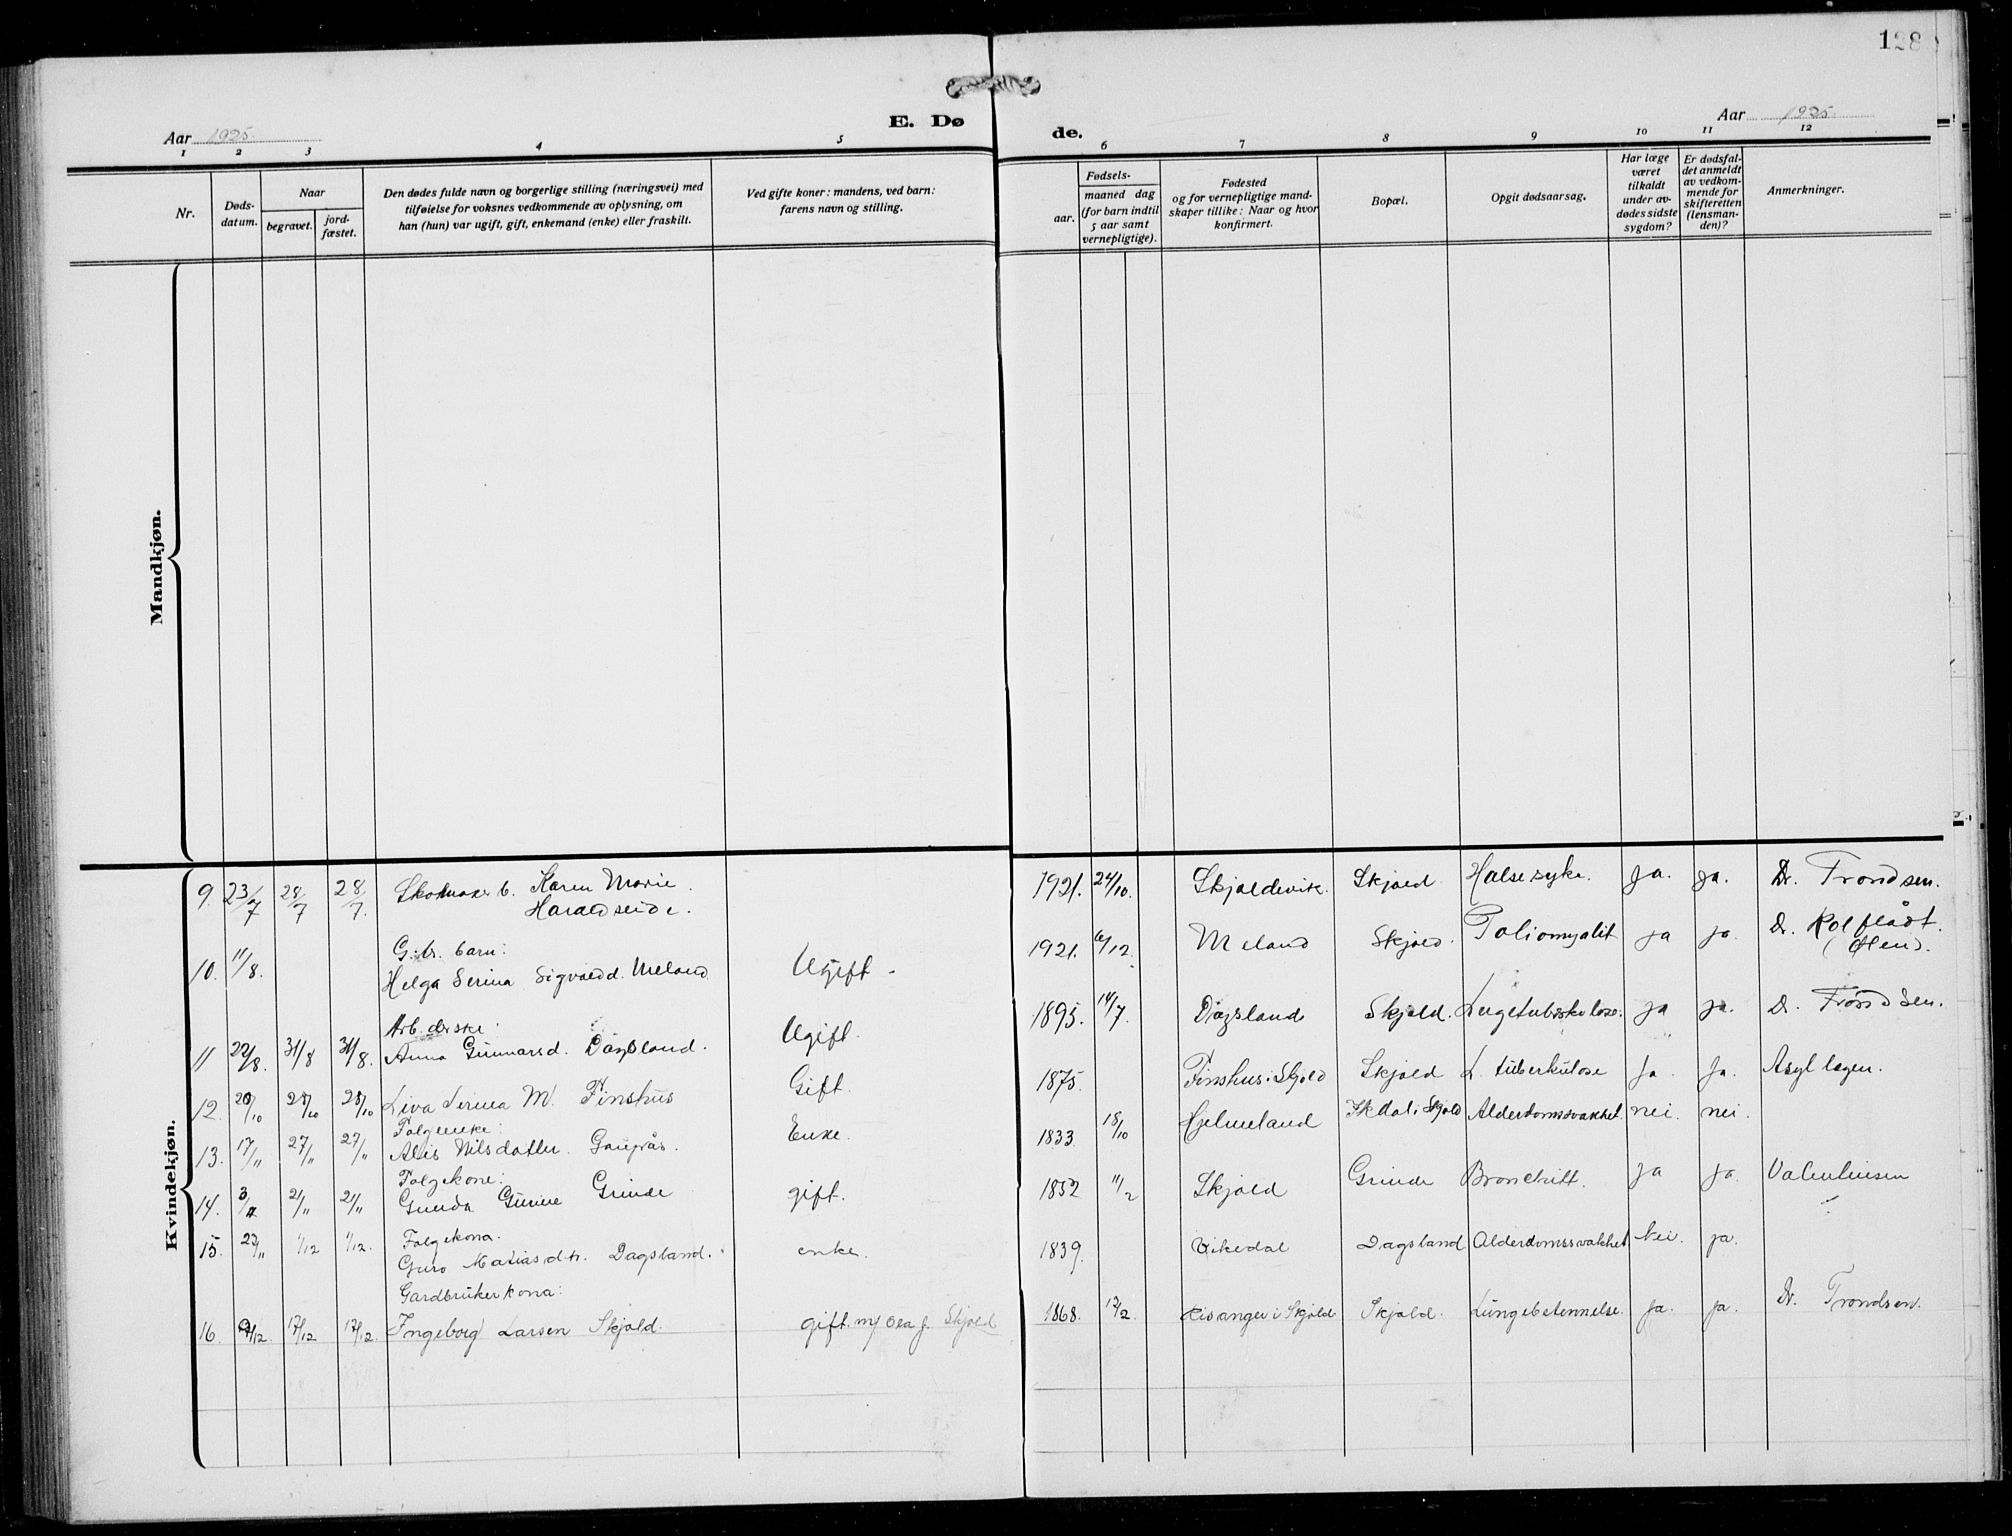 128
Aar 1925.
E. Dø
de.
Aar 1925.
1 2 3 4 5 6 7 8 9 10 11 12
Nr.
Døds-
datum.
Naar
begravet.
jord-
fæstet.
Den dødes fulde navn og borgerlige stilling (næringsvei) med
tilføielse for voksnes vedkommende av oplysning, om
han (hun) var ugift, gift, enkemand (enke) eller fraskilt.
Ved gifte koner: mandens, ved barn:
farens navn og stilling.
Fødsels-
aar.
maaned dag
(for barn indtil
5 aar samt
vernepligtige).
Fødested
og for vernepligtige mand-
skaper tillike: Naar og hvor
konfirmert.
Bopæl.
Opgit dødsaarsag.
Har læge
været
tilkaldt
under av-
dødes sidste
sygdom?
Er dødsfal-
det anmeldt
av vedkom-
mende for
skifteretten
(lensman-
den)?
Anmerkninger.
Mandkjøn.
Kvindekjøn.
9. 23/7 28/7 28/7. Skomaker b. Karen Marie
Haraldseide. 1921. 24/10. Skjoldevik. Skjold Halsesyke. ja. ja. Dr. Trondsen.
G.br. barn:
10. 11/8. Helga Serina Sigvaldd. Meland Ugift - 1921. 6/12. Meland Skjold. Poliomyelit ja ja. Dr. Rolfladt.
(Ølen).
Arb.derske:
11 29/8. 31/8 31/8. Anna Gunnarsd. Dagsland. Ugift. 1895. 14/7. Dagsland Skjold. Lugetuberkolose. ja ja. Dr. Trondsen.
12. 20/10 28/10 28/10 Liva Serina M. Finshus Gift. 1875. Finshus i Skjold Skjold L. tuberkulose Ja. Ja. Asyl lægen.
Folgeenke:
13. 17/11 27/11 27/11 Alis Nilsdatter Gangås. Enke. 1833. 18/10 Hjelmeland Skdal i Skjold Alderdomsvakhet nei. nei.
Folgekone:
14. 3/11 21/11 21/11 Gunda Gurine Grinde gift. 1852 11/2 Skjold Grinde Bronckitt. ja ja. Valentinsen
Folgekona.
15. 23/11 1/12 1/12. Guro Matiasdtr. Dagsland. enke. 1839. Vikedal Dagsland Alderdomssvakhet Nei. ja.
Gardbrukerkona:
16. 9/12 17/12 17/12. Ingeborg Larsen Skjold. gift m/ Ola J. Skjold 1868. 12/2. Eisanger i Skjold Skjold. Lungebetennelse. Ja. ja. Dr. Trondsen.